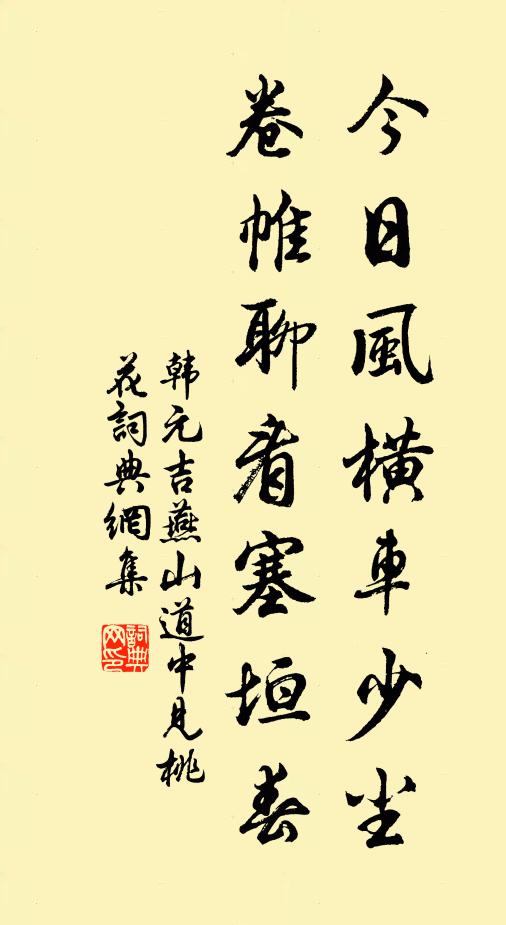 今日風橫車少尘
卷帷聊看塞垣春
韩元吉燕山道中見桃
花詞典網集
詞典网印